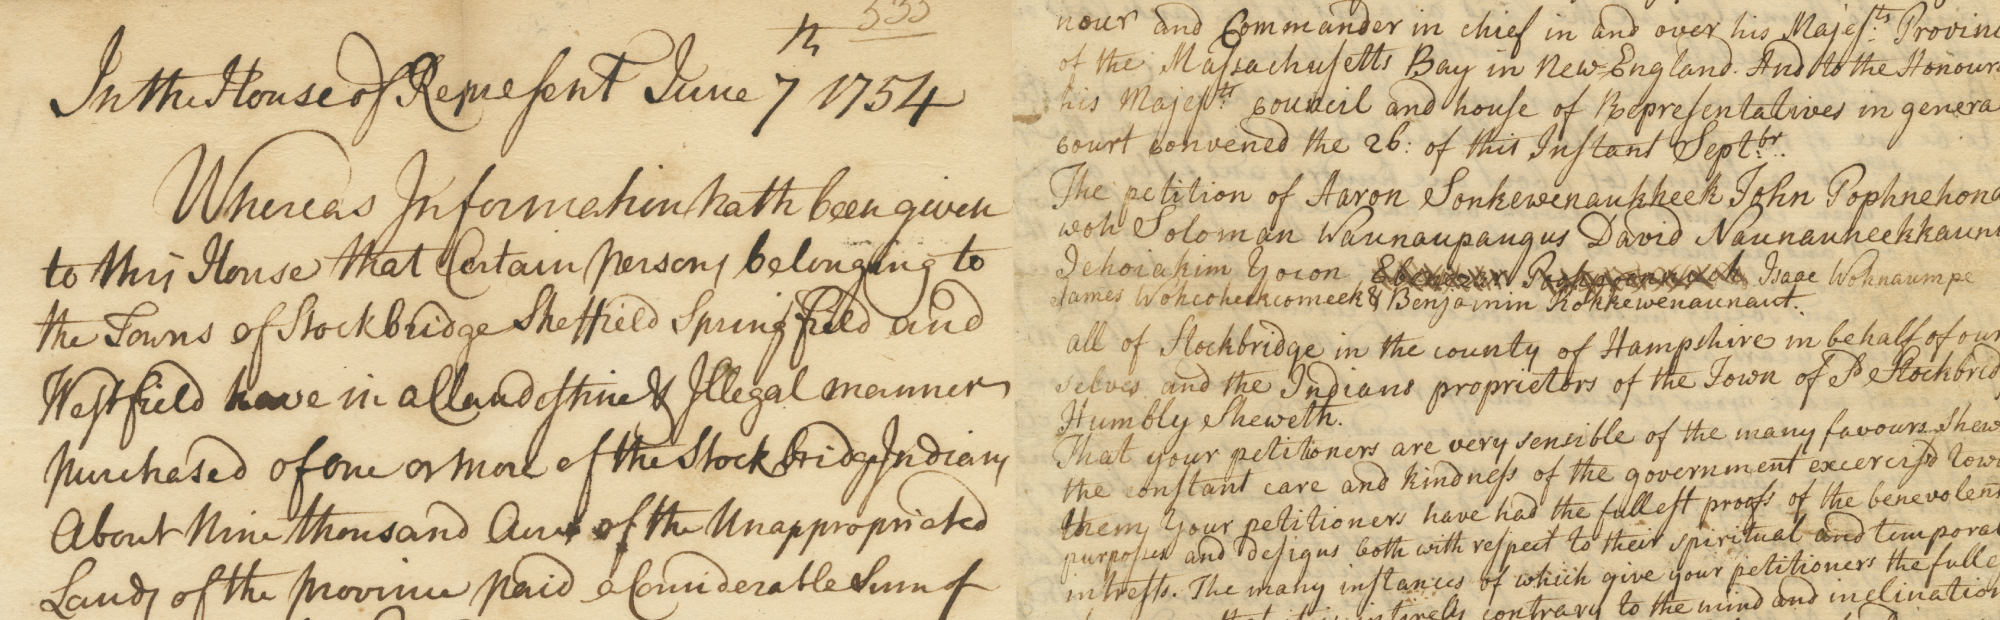 535
In the House of Represent June 7th 1754
Whereas Information hath been given
to this House that Certain persons belonging to
the Towns of Stockbridge Sheffield Springfield and
Westfield have in a Clandestine & Illegal manner
purchased of one or more of the Stockbridge Indians
About Nine thousand Acres of the Unappropriated
Lands of the province paid a Considerable Sum of
nour and Commander in chief in and over his Majesty's Provinc
of the Massachusetts Bay in New-England. And to the Honour
his Majesty's council and house of Representatives in genera
court convened the 26: of this Instant Septbr.
The petition of Aaron Sonkewenaukheek John Pophnehona
woh Soloman Waunaupaugus David Naunauneekkaun
Jehoiakim Yocon Isaac Wohnaumpe
James Wohcoheekcomeek & Benjamin Kokkewenaunaut.
all of Stockbridge in the county of Hampshire in behalf of our
selves and the Indians proprietors of the Town of Sd Stockbrid
Humbly Sheweth.
That your petitioners are very sensible of the many favours shew
the constant care and kindness of the government excercis'd tow
them your petitioners have had the fullest proofs of the benevolent
purposes and designs both with respect to their spiritual and temporal
intrests. The many instances of which give your petitioners the fulle
contrary to the mind and inclination